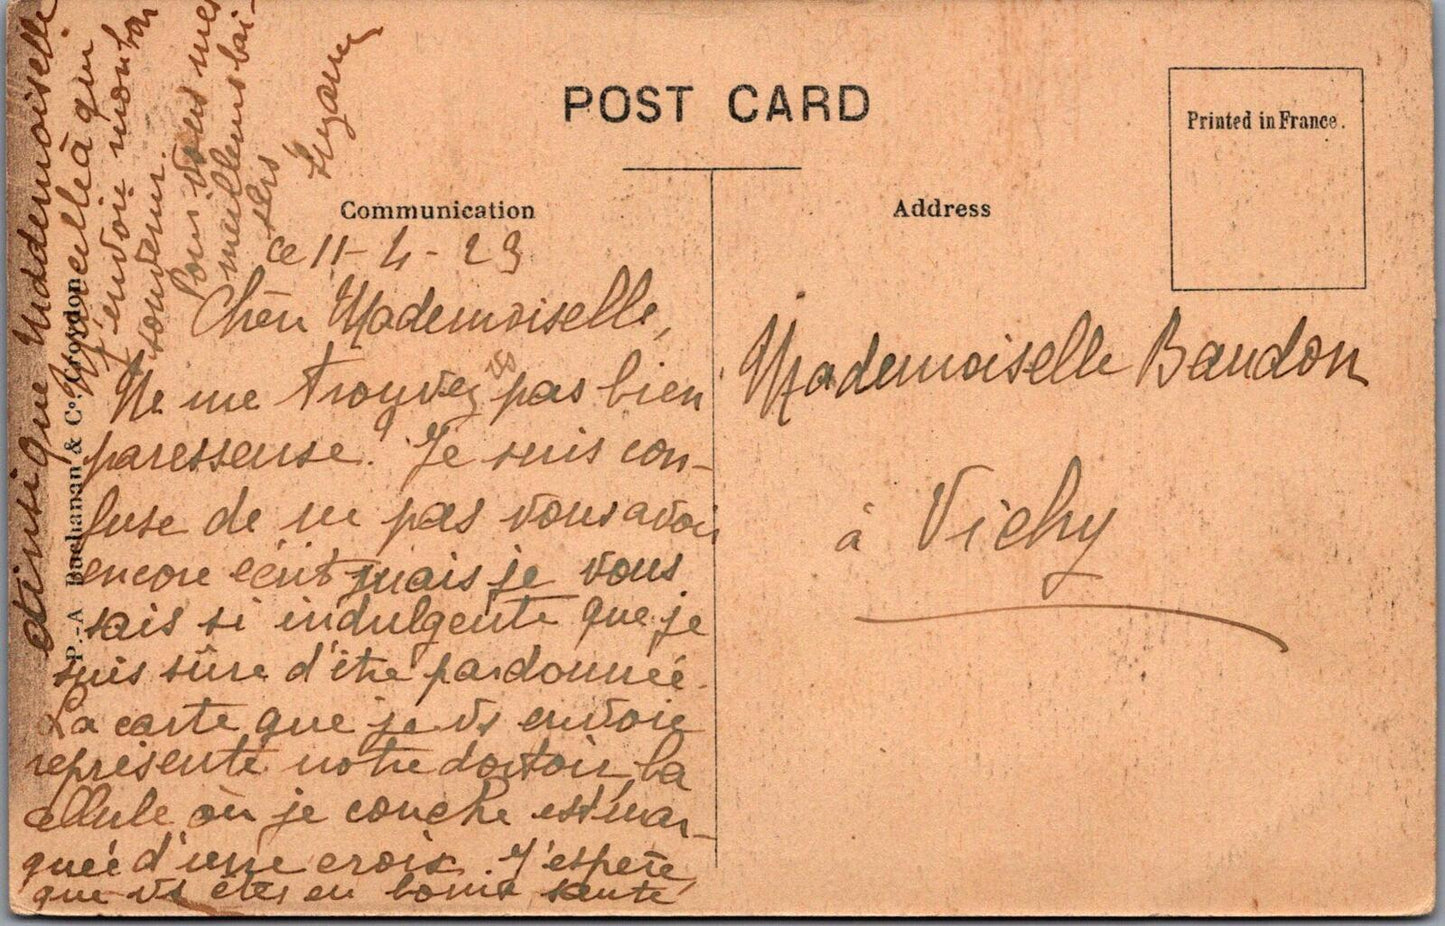 POST CARD
Printed in France.
Communication
Address
ce 11-4-23
Chère Mademoiselle,
Ne me trouvez vs pas bien
paresseuse. Je suis con-
fuse de ne pas vous avoir
encore écrit mais je vous
sais si indulgente que je
suis sûre d'être pardonnée.
La carte que je vs envoie
représente notre dortoir, la
cellule où je couche est mar-
quée d'une croix. J'espère
que vs êtes en bonne santé
ainsi que Mademoiselle
Marcelle à qui
j'envoie mon bon
souvenir.
Pour vous mes
meilleurs bai-
sers
Suzanne
P.-A Buchanan & Co. Croydon
Mademoiselle Baudon
à Vichy